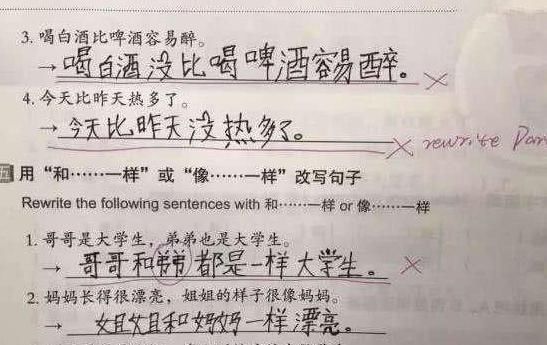 3. 喝白酒比啤酒容易醉。
→ 喝白酒没比喝啤酒容易醉。 ×
4. 今天比昨天热多了。
→ 今天比昨天没热多了。 × rewrite
五 用“和……一样”或“像……一样”改写句子
Rewrite the following sentences with 和……一样 or 像……一样
1. 哥哥是大学生，弟弟也是大学生。
→ 哥哥和弟弟都是一样大学生。 ×
2. 妈妈长得很漂亮，姐姐的样子很像妈妈。
→ 姐姐和妈妈一样漂亮。